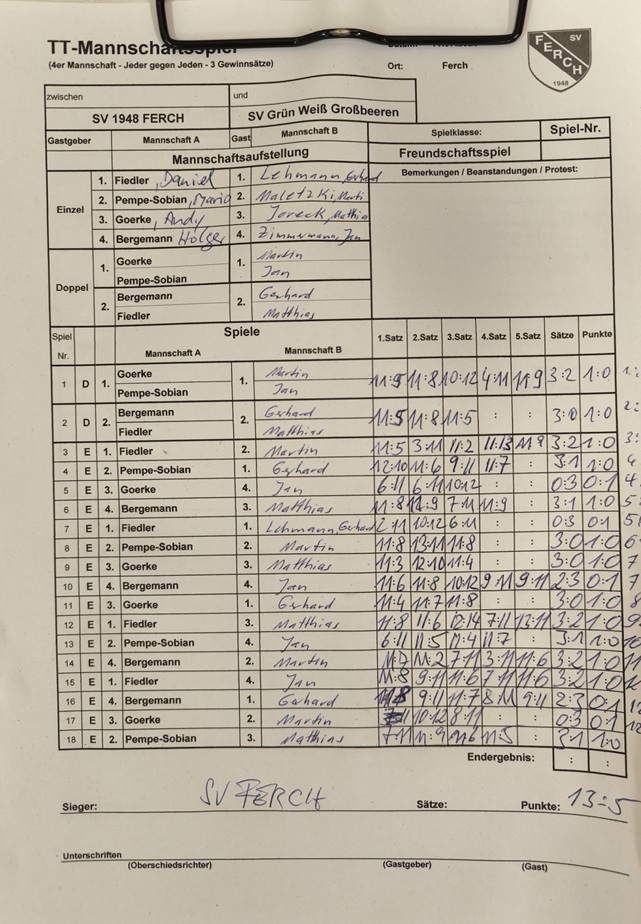 TT-Mannschaftsspiel
(4er Mannschaft - Jeder gegen Jeden - 3 Gewinnsätze)
Ort: Ferch
SV FERCH 1948
zwischen und
SV 1948 FERCH SV Grün Weiß Großbeeren
Gastgeber Mannschaft A Gast Mannschaft B Spielklasse: Spiel-Nr.
Mannschaftsaufstellung Freundschaftsspiel
Bemerkungen / Beanstandungen / Protest:
Einzel
1. Fiedler, Daniel 1. Lehmann, Gerhard
2. Pempe-Sobian, Mario 2. Maletzki, Marti
3. Goerke, Andy 3. Joreck, Matthias
4. Bergemann Holger 4. Zimmermann, Jan
Doppel
1. Goerke 1. Martin
Pempe-Sobian Jan
2. Bergemann 2. Gerhard
Fiedler Matthias
Spiel Nr. Spiele
Mannschaft A Mannschaft B 1.Satz 2.Satz 3.Satz 4.Satz 5.Satz Sätze Punkte
1 D 1. Goerke 1. Martin
Pempe-Sobian Jan 11:5 11:8 10:12 4:11 11:9 3:2 1:0
2 D 2. Bergemann 2. Gerhard
Fiedler Matthias 11:5 11:8 11:5 : : 3:0 1:0
3 E 1. Fiedler 2. Martin 11:5 3:11 11:2 11:13 11:9 3:2 1:0
4 E 2. Pempe-Sobian 1. Gerhard 12:10 11:6 9:11 11:7 : 3:1 1:0
5 E 3. Goerke 4. Jan 6:11 6:11 10:12 : : 0:3 0:1
6 E 4. Bergemann 3. Matthias 11:8 7:11 11:9 : 3:1 1:0
7 E 1. Fiedler 1. Lehmann, Gerhard 2:11 10:12 6:11 : : 0:3 0:1
8 E 2. Pempe-Sobian 2. Martin 11:8 13:11 11:8 : : 3:0 1:0
9 E 3. Goerke 3. Matthias 11:3 12:10 11:4 : : 3:0 1:0
10 E 4. Bergemann 4. Jan 11:6 11:8 10:12 9:11 9:11 2:3 0:1
11 E 3. Goerke 1. Gerhard 11:4 11:7 11:8 : : 3:0 1:0
12 E 1. Fiedler 3. Matthias 11:8 11:6 12:14 7:11 13:11 3:2 1:0
13 E 2. Pempe-Sobian 4. Jan 6:11 11:5 11:4 11:7 : 3:1 1:0
14 E 4. Bergemann 2. Martin 11:2 7:11 3:11 11:6 3:2 1:0
15 E 1. Fiedler 4. Jan 11:8 9:11 11:6 7:11 11:6 3:2 1:0
16 E 4. Bergemann 1. Gerhard 9:11 11:7 8:11 9:11 2:3 0:1
17 E 3. Goerke 2. Martin 10:12 8:11 : : 0:3 0:1
18 E 2. Pempe-Sobian 3. Matthias 7:11 11:9 11:6 11:5 : 3:1 1:0
Endergebnis: : :
Sieger: SV FERCH Sätze: Punkte: 13:5
Unterschriften
(Oberschiedsrichter) (Gastgeber) (Gast)